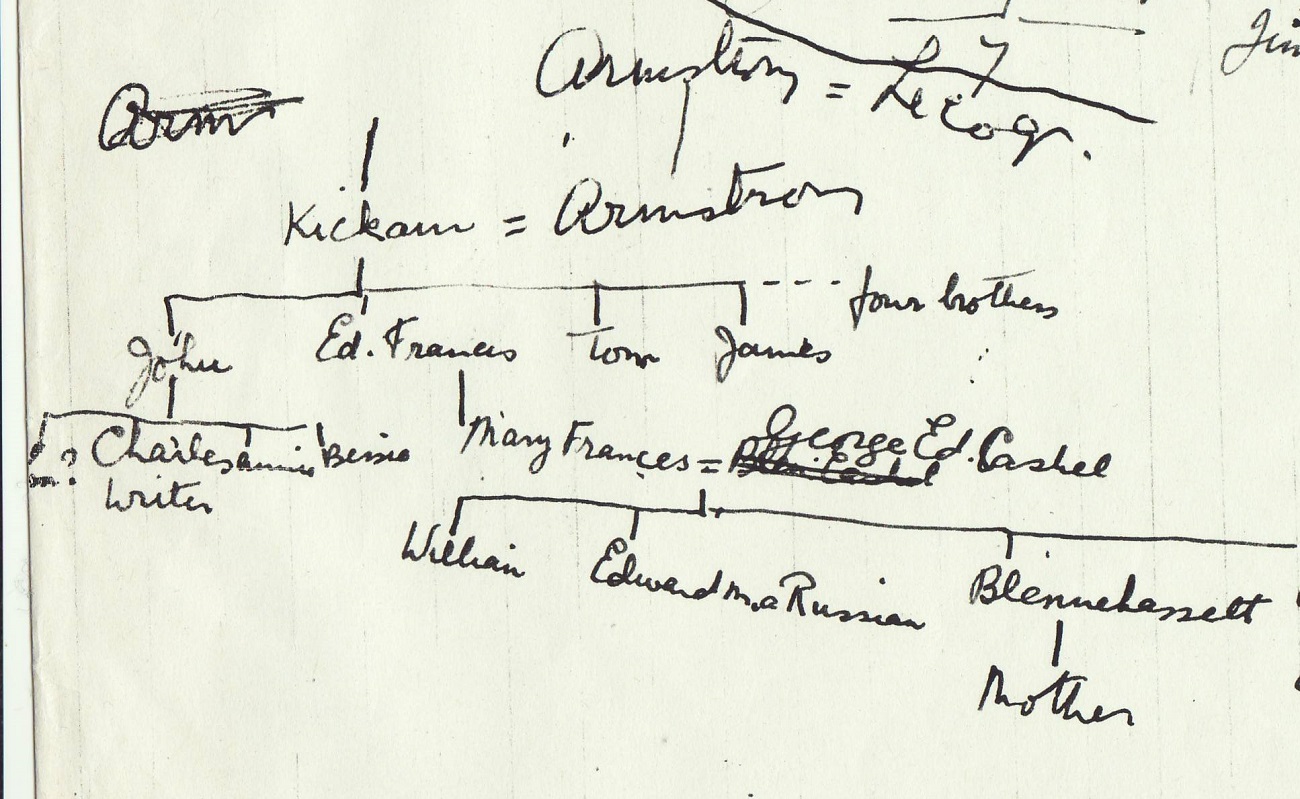 Armstrong = Le Coq.
Arm
Kickam = Armstrong
four brothers
John Ed. Francis Tom James
Charles Annie Bessie Mary Frances = George Ed. Cashel
Writer
William Edward m. a Russian Blennehassett
Mother